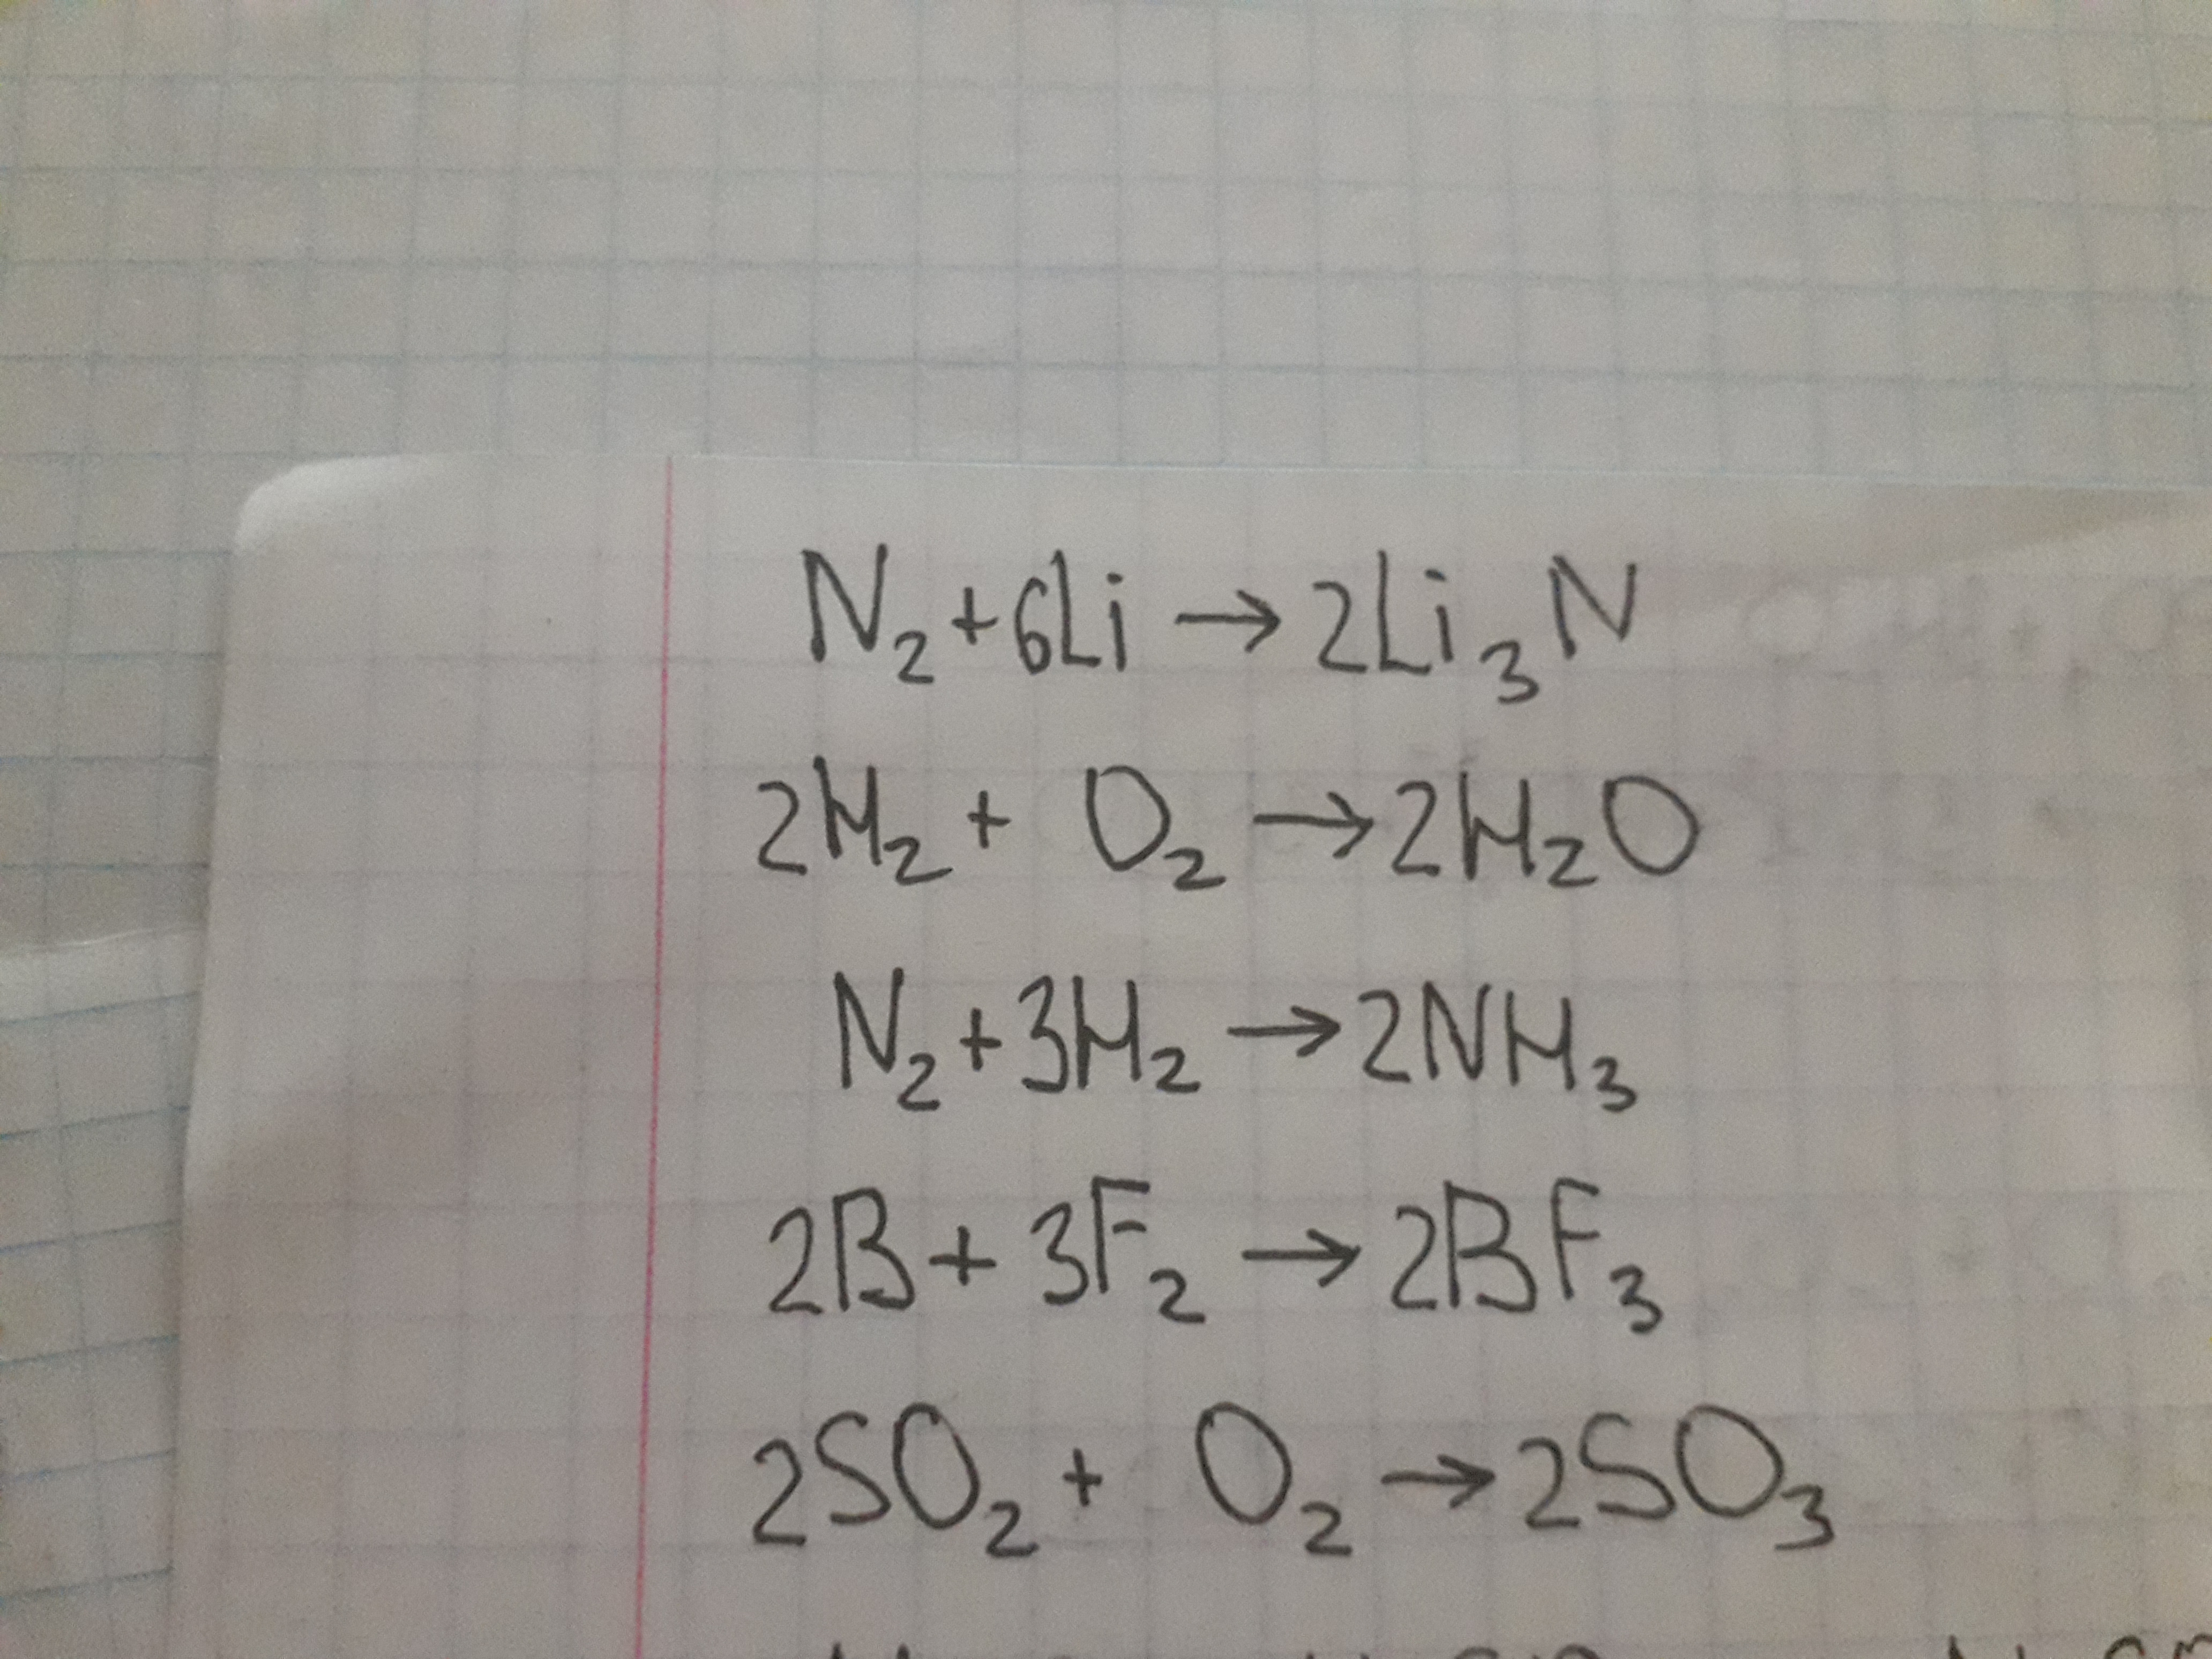 N₂+6Li → 2Li₃N
2H₂ + O₂ → 2H₂O
N₂+3H₂ → 2NH₃
2B + 3F₂ → 2BF₃
2SO₂ + O₂ → 2SO₃